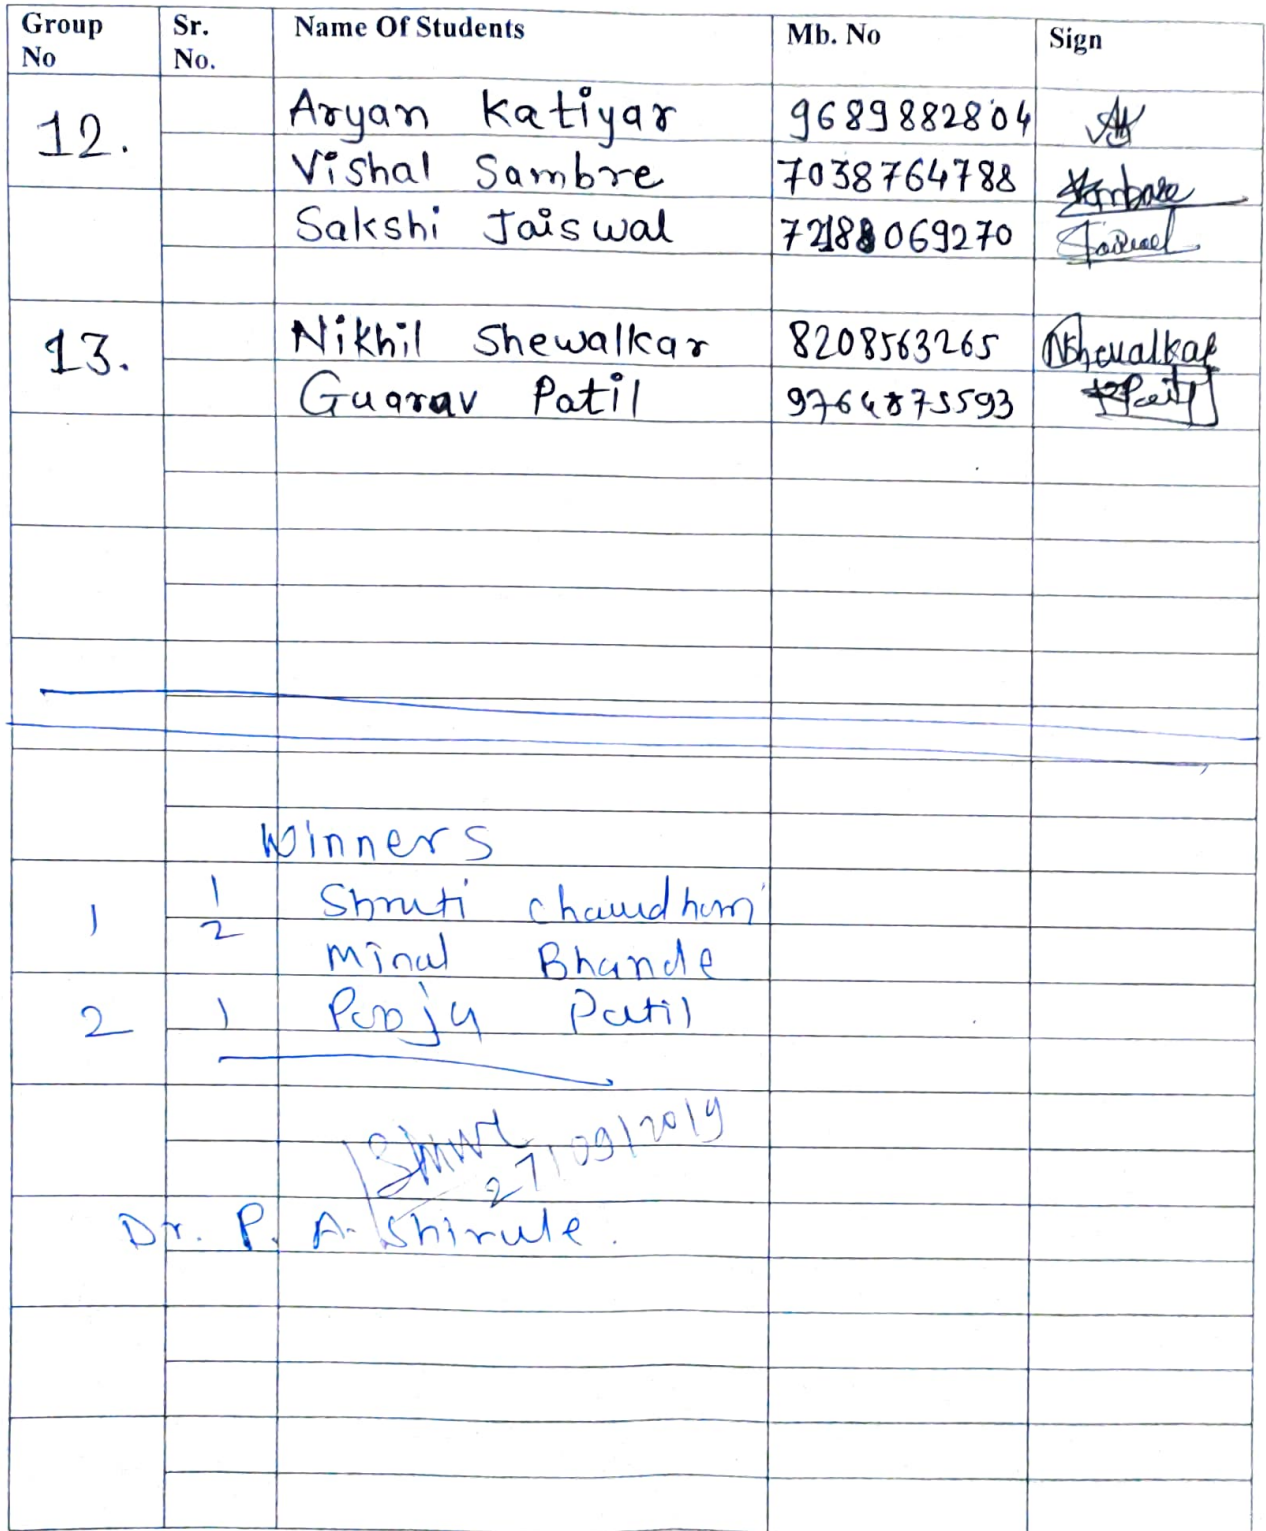 Group No Sr. No. Name Of Students Mb. No Sign
12. Aryan Katiyar 9689882804
Vishal Sambre 7038764788
Sakshi Jaiswal
13. Nikhil Shewalkar 8208563265 NShewalkar
Guarav Patil 9764873593
Winners
1 1 Shruti Chaudhari
2
Minal Bhande
2 1 Pooja Patil
27/09/2019
Dr. P. A. Shirule.